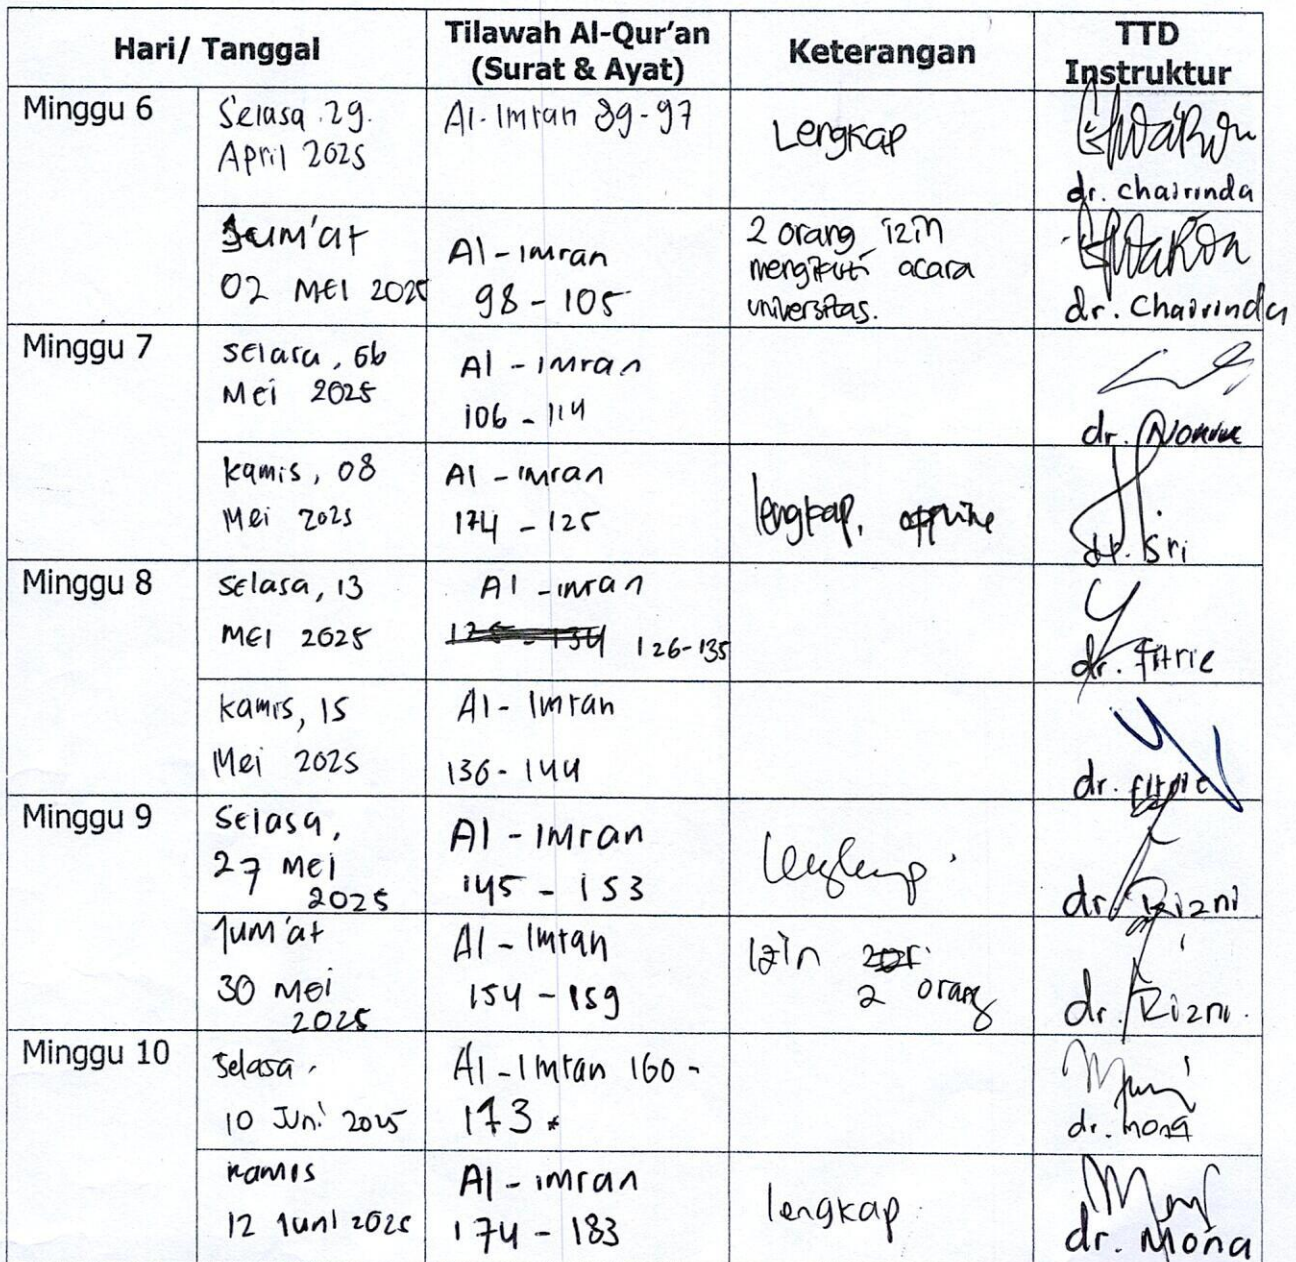 Hari/ Tanggal
Tilawah Al-Qur'an
(Surat & Ayat)
Keterangan
TTD
Instruktur
Minggu 6
Selasa 29.
April 2025
Al-Imran 89-97
Lengkap
dr. Chairinda
Jum'at
02 MEI 2025
Al-Imran
98 - 105
2 orang izin
mengikuti acara
universitas.
dr. Chairinda
Minggu 7
Selasa, 06
Mei 2025
Al-Imran
106 - 114
dr.
Kamis, 08
Mei 2025
Al-Imran
174 - 125
lengkap, offline
dr. Sri
Minggu 8
Selasa, 13
MEI 2025
Al-Imran
126-135
dr. Fitrie
Kamis, 15
Mei 2025
Al-Imran
136-144
dr. Fitrie
Minggu 9
Selasa,
27 Mei
2025
Al-Imran
145 - 153
Lengkap
dr. Rizni
Jum'at
30 Mei
2025
Al-Imran
154 - 159
Izin
2 orang
dr. Rizni.
Minggu 10
Selasa,
10 Juni 2025
Al-Imran 160 -
173
dr. Mona
Kamis
12 Juni 2025
Al-Imran
174 - 183
lengkap
dr. Mona